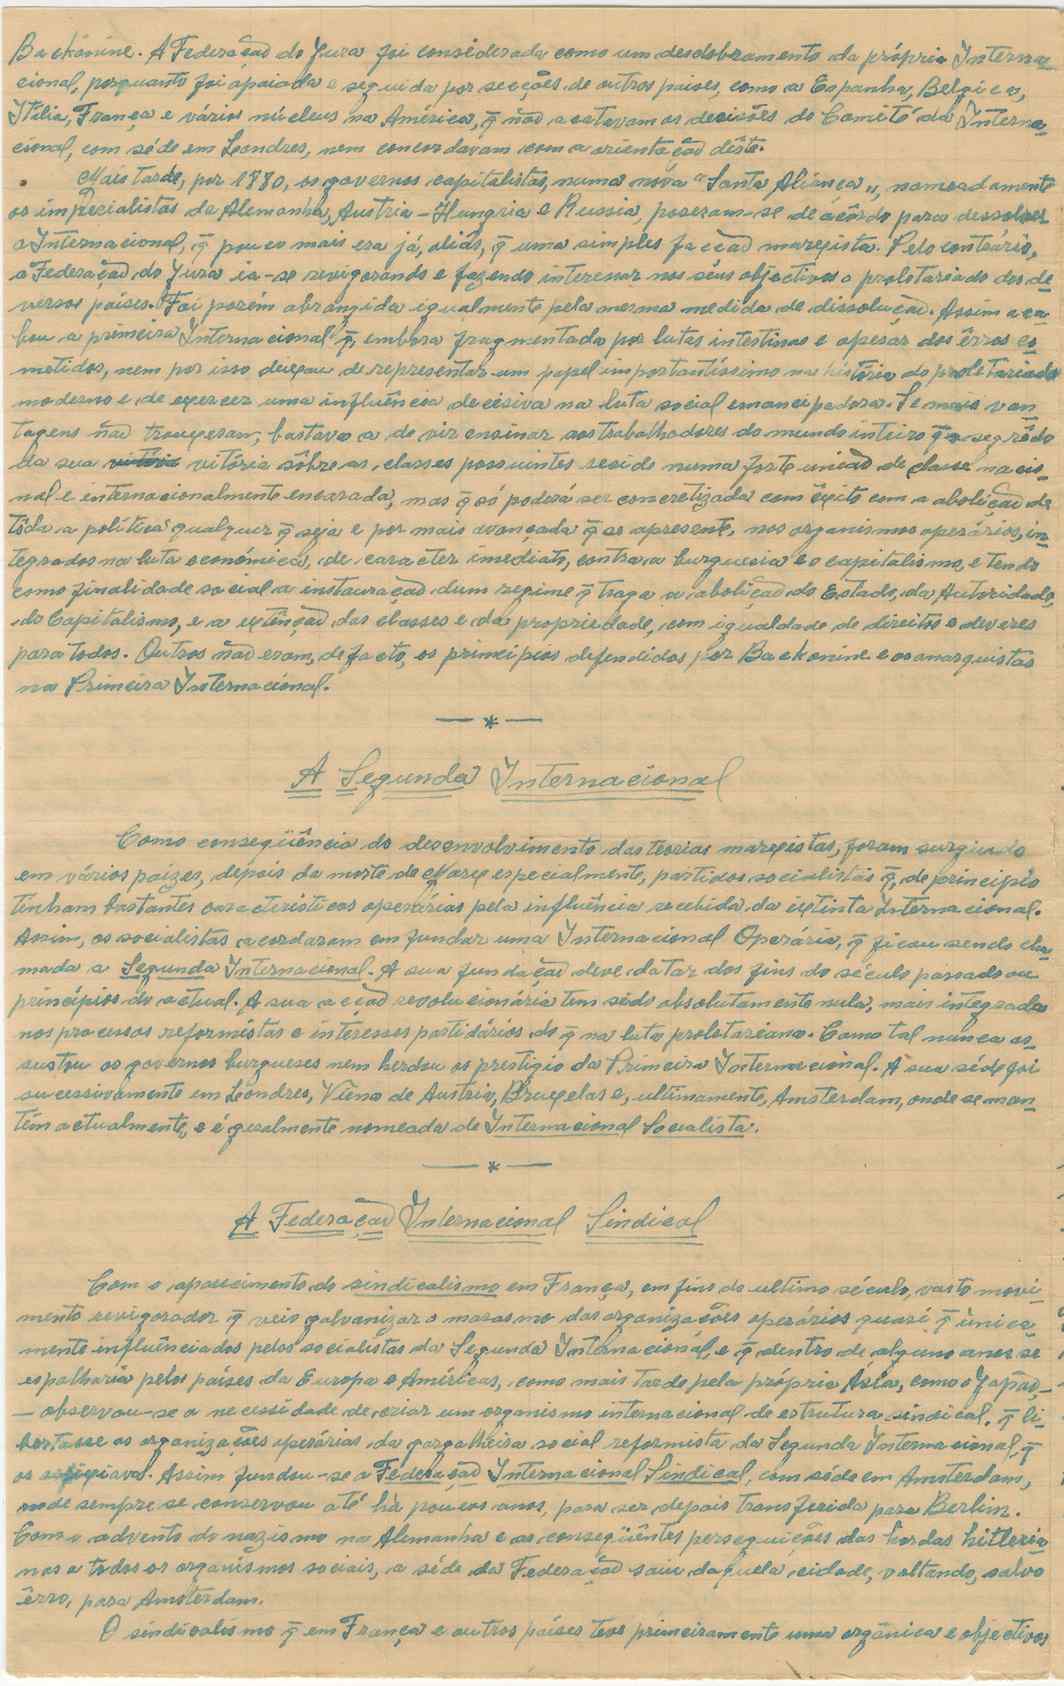 Backónine. A Federação do Jura foi considerada como um desdobramento da própria Interna-
cional, porquanto foi apoiada e seguida por secções de outros países, como a Espanha, Belgica,
Itália, França e vários núcleus na América, q̃ não acatavam as decisões do Comité da Interna-
cional, com séde em Londres, nem concordavam com a orientação dêste.
Mais tarde, por 1880, os governos capitalistas, numa nova "Santa Aliança", nomeadamente
os imperialistas da Alemanha, Austria-Hungria e Russia, poseram-se de acôrdo para dessolver
a Internacional, q̃ pouco mais era já, aliás, q̃ uma simples facção marxista. Pelo contrário,
a Federação do Jura ia-se revigorando e fazendo interessar nos seus objectivos o proletariado dos de-
versos países. Foi porém abrangida igualmente pela mesma medida de dissolução. Assim aca-
bou a primeira Internacional q̃, embora fragmentada por lutas intestinas e apesar dos êrros co-
metidos, nem por isso deixou de representar um papel importantíssimo na história do proletariado
moderno e de exercer uma influência decisiva na luta social emancipadora. Se mais van-
tagens não trouxeram, bastava a de vir ensinar aos trabalhadores do mundo inteiro q̃ o segrêdo
da sua vitória vitória sôbre as classes possuintes reside numa forte união de classe nacio-
nal e internacionalmente encarada, mas q̃ só poderá ser concretizada com êxito com a abolição de
tôda a política qualquer q̃ seja e por mais avançada q̃ se apresente, nos organismos operários, in-
tegrados na luta económica, de caracter imediato, contra a burguesia e o capitalismo, e tendo
como finalidade social a instauração dum regime q̃ traga a abolição do Estado, da Autoridade,
do Capitalismo, e a extinção das classes e da propriedade, com igualdade de direitos e deveres
para todos. Outros não eram, de facto, os princípios defendidos por Backonine e os anarquistas
na Primeira Internacional.
— * —
A Segunda Internacional
Como conseqüência do desenvolvimento das teorias marxistas, foram surgindo
em vários paízes, depois da morte de Marx especialmente, partidos socialistas q̃, de princípio
tinham bastantes caracteristicas operárias pela influência recebida da extinta Internacional.
Assim, os socialistas acordaram em fundar uma Internacional Operária, q̃ ficou sendo cha-
mada a Segunda Internacional. A sua fundação deve datar dos fins do século passado ou
princípios do actual. A sua acção revolucionária tem sido absolutamente nula, mais integrada
nos processos reformistas e interesses partidários do q̃ na luta proletariana. Como tal nunca as-
sustou os governos burgueses nem herdou os prestigio da Primeira Internacional. A sua séde foi
sucessivamente em Londres, Viena de Austria, Bruxelas e, ultimamente, Amsterdam, onde se man-
têm actualmente, e é igualmente nomeada de Internacional Socialista.
— * —
A Federação Internacional Sindical
Com o aparecimento do sindicalismo em França, em fins do ultimo século, vasto movi-
mento revigorador q̃ veio galvanizar o marasmo das organizações operárias quasi q̃ única-
mente influênciados pelos socialistas da Segunda Internacional, e q̃ dentro de alguns anos se
espalharia pelos países da Europa e Américas, como mais tarde pela própria Asia, como o Japão-
- observou-se a necessidade de criar um organismo internacional de estrutura sindical, q̃ li-
bertasse as organizações operárias da gargalheira social reformista da Segunda Internacional, q̃
os asfixiava. Assim fundou-se a Federação Internacional Sindical, com séde em Amsterdam,
onde sempre se conservou até há poucos anos, para ser depois transferida para Berlim.
Com o advento do nazismo na Alemanha e as conseqüêntes perseguições das hordas hitleria-
nas a todos os organismos sociais, a séde da Federação saiu daquela cidade, voltando, salvo
êrro, para Amsterdam.
O sindicalismo q̃ em França e outros países teve primeiramente uma orgânica e objectivos